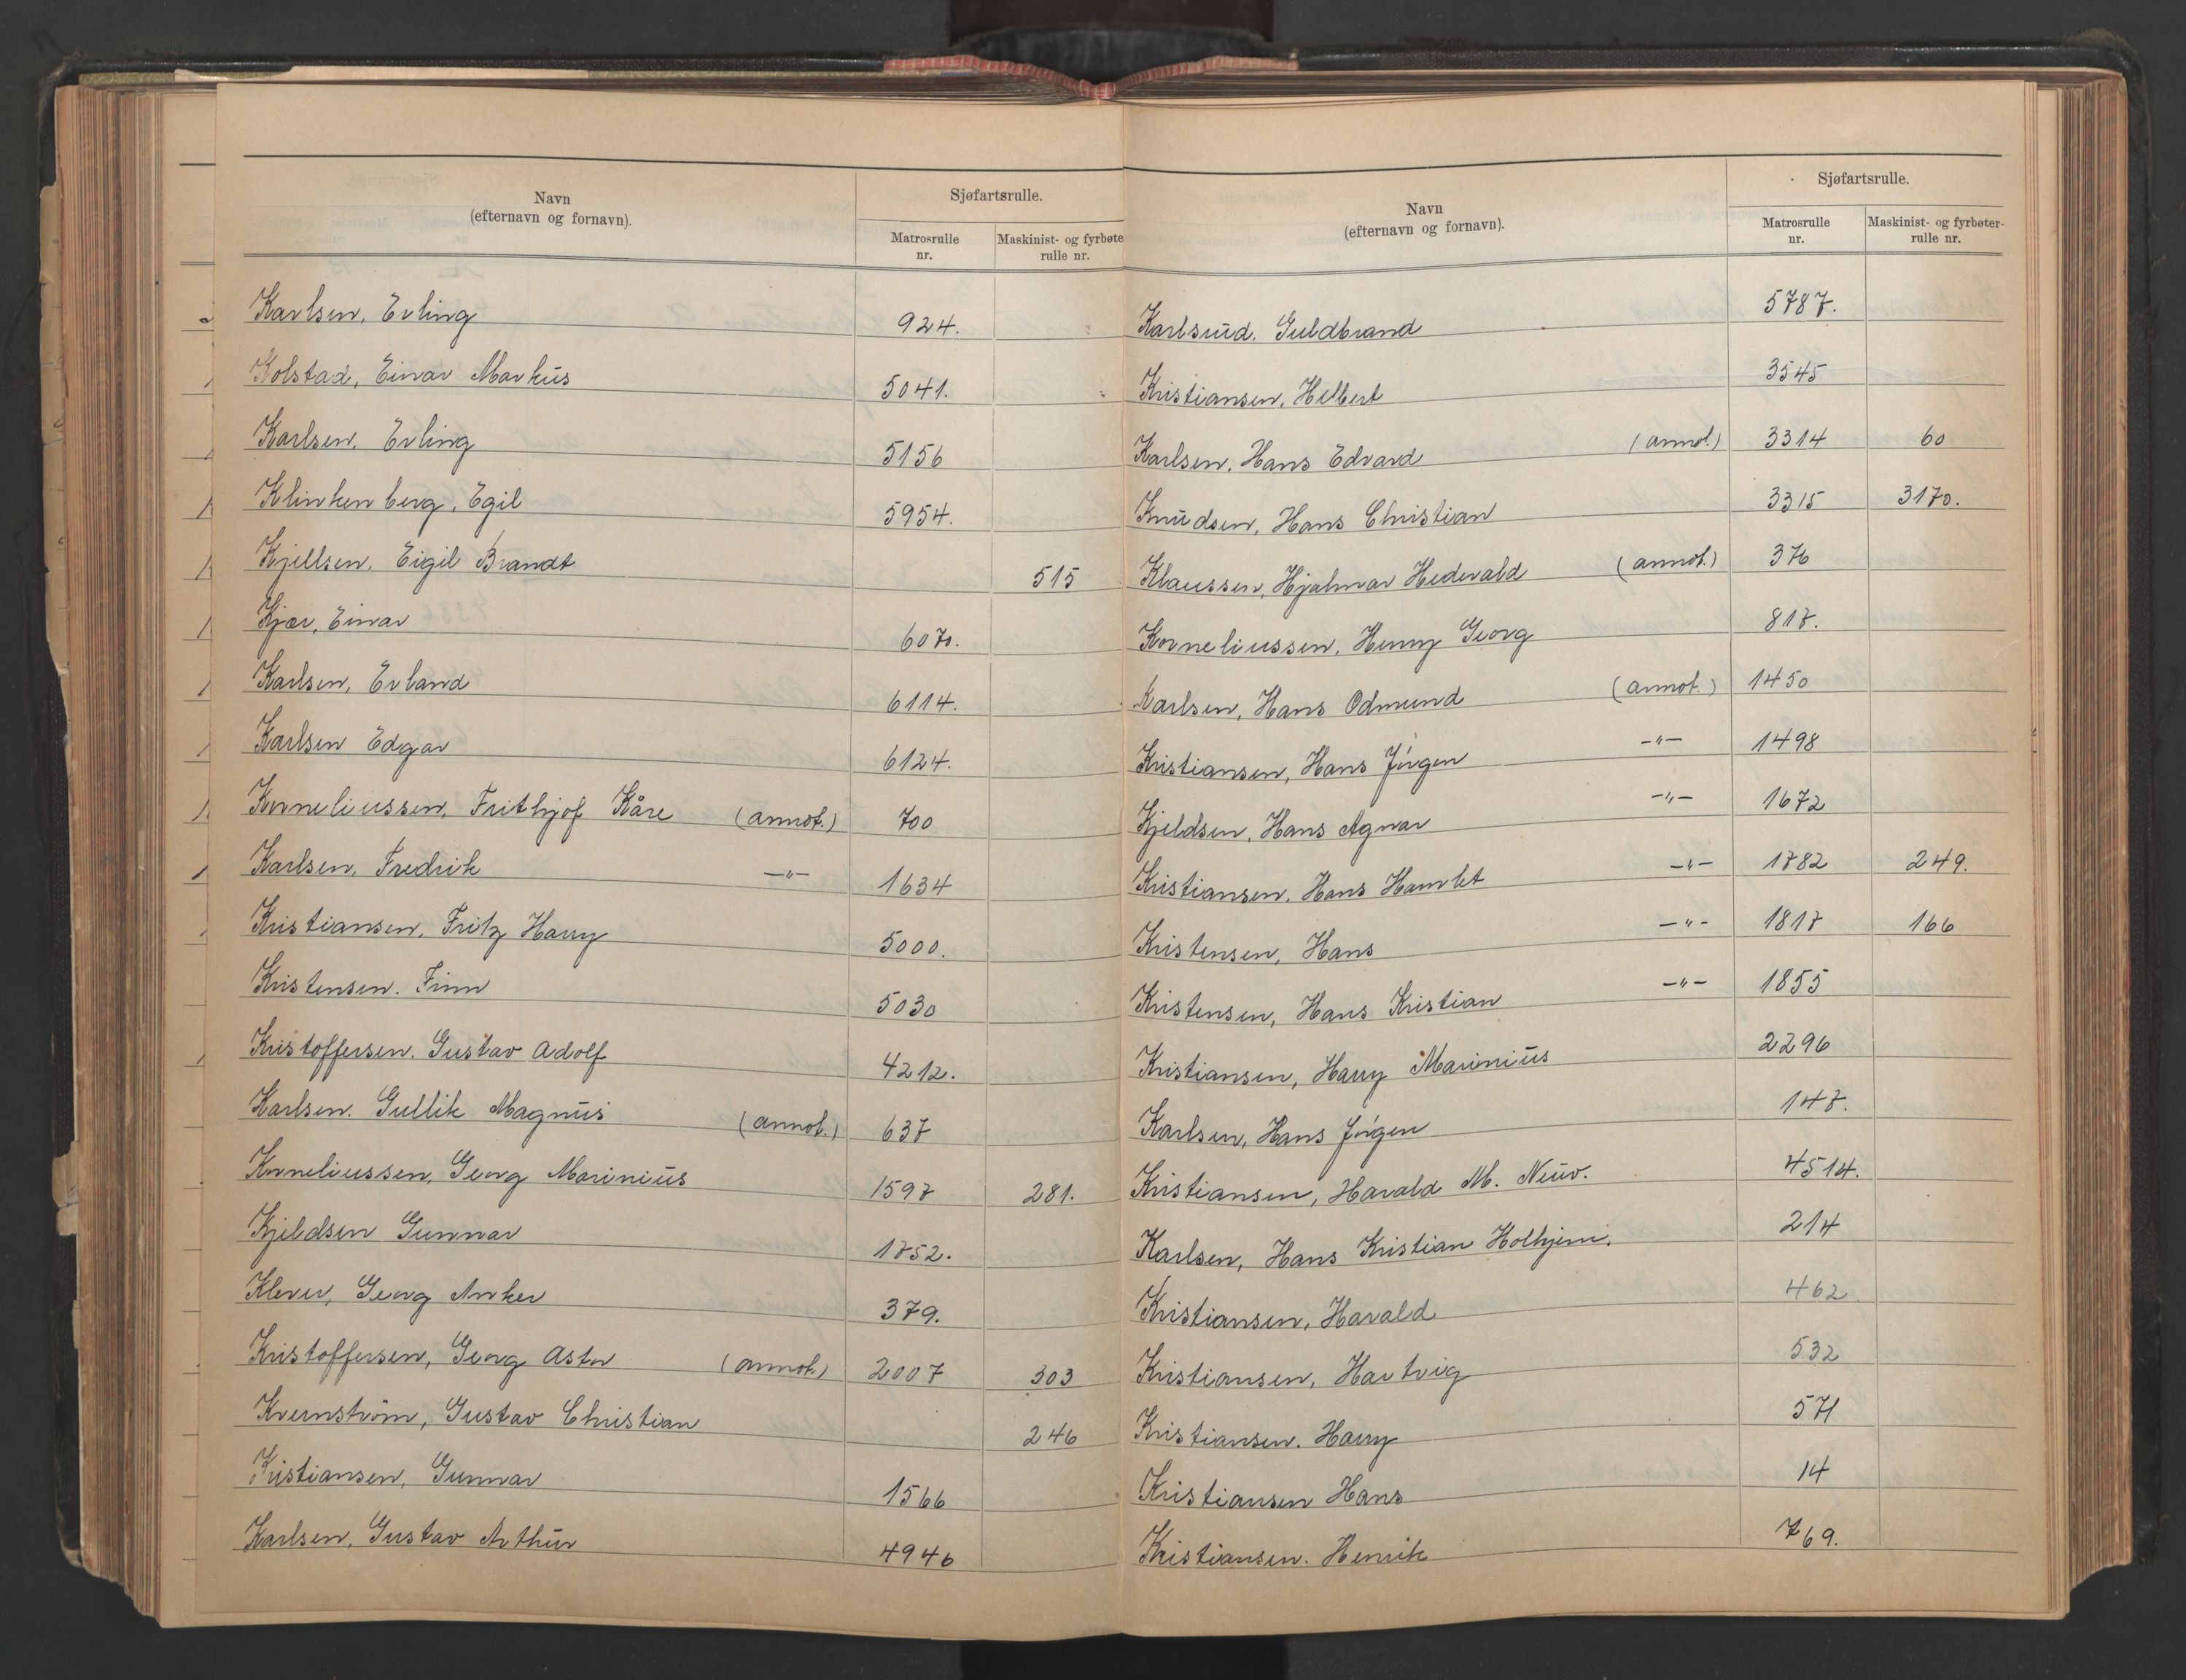 Navn
(efternavn og fornavn).
Sjøfartsrulle.
Matrosrulle nr.
Maskinist- og fyrbøte rulle nr.
Karlsen, Erling 924.
Kolstad, Einar Markus 5041.
Karlsen, Erling 5156
Klinkenberg, Egil 5954.
Kjellsen, Eigil Brandt 515
Kjær, Einar 6070.
Karlsen, Erland 6114.
Karlsen Edgar 6124.
Korneliussen, Frithjof Kåre (annot.) 700
Karlsen, Fredrik —"— 1634
Kristiansen, Fritz Harry 5000.
Kristensen. Finn 5030
Kristoffersen. Gustav Adolf 4212.
Karlsen. Gullik Magnus (annot.) 637
Korneliussen, Georg Marinius 1597 281.
Kjeldsen Gunnar 1752.
Klever, Georg Anker 379.
Kristoffersen, Georg Astor (annot.) 2007 303
Kvernstrøm, Gustav Christian 246
Kristiansen, Gunnar 1566
Karlsen, Gustav Arthur 4946
Navn
(efternavn og fornavn).
Sjøfartsrulle.
Matrosrulle nr.
Maskinist- og fyrbøter- rulle nr.
Karlsrud, Guldbrand 5787.
Kristiansen, Helbert 3545
Karlsen, Hans Edvard (annot.) 3314 60
Knudsen, Hans Christian 3315 3170.
Klaussen, Hjalmar Hedevald (annot.) 376
Korneliussen, Henry Georg 817.
Karlsen, Hans Odmund (annot.) 1450
Kristiansen, Hans Jörgen —"— 1498
Kjeldsen, Hans Agnar —"— 1672
Kristiansen, Hans Hamlet —"— 1782 249.
Kristensen, Hans —"— 1817 166
Kristensen, Hans Kristian —"— 1855
Kristiansen, Harry Marinius 2296
Karlsen, Hans Jörgen 147.
Kristiansen, Harald M. Neuv. 4514.
Karlsen, Hans Kristian Holhjem. 214
Kristiansen, Harald 462
Kristiansen, Hartvig 532
Kristiansen. Harry 571
Kristiansen Hans 14
Kristiansen. Henrik 769.